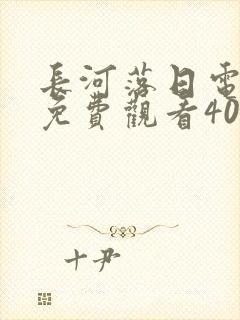 長河落日電
免費觀看40
十尹